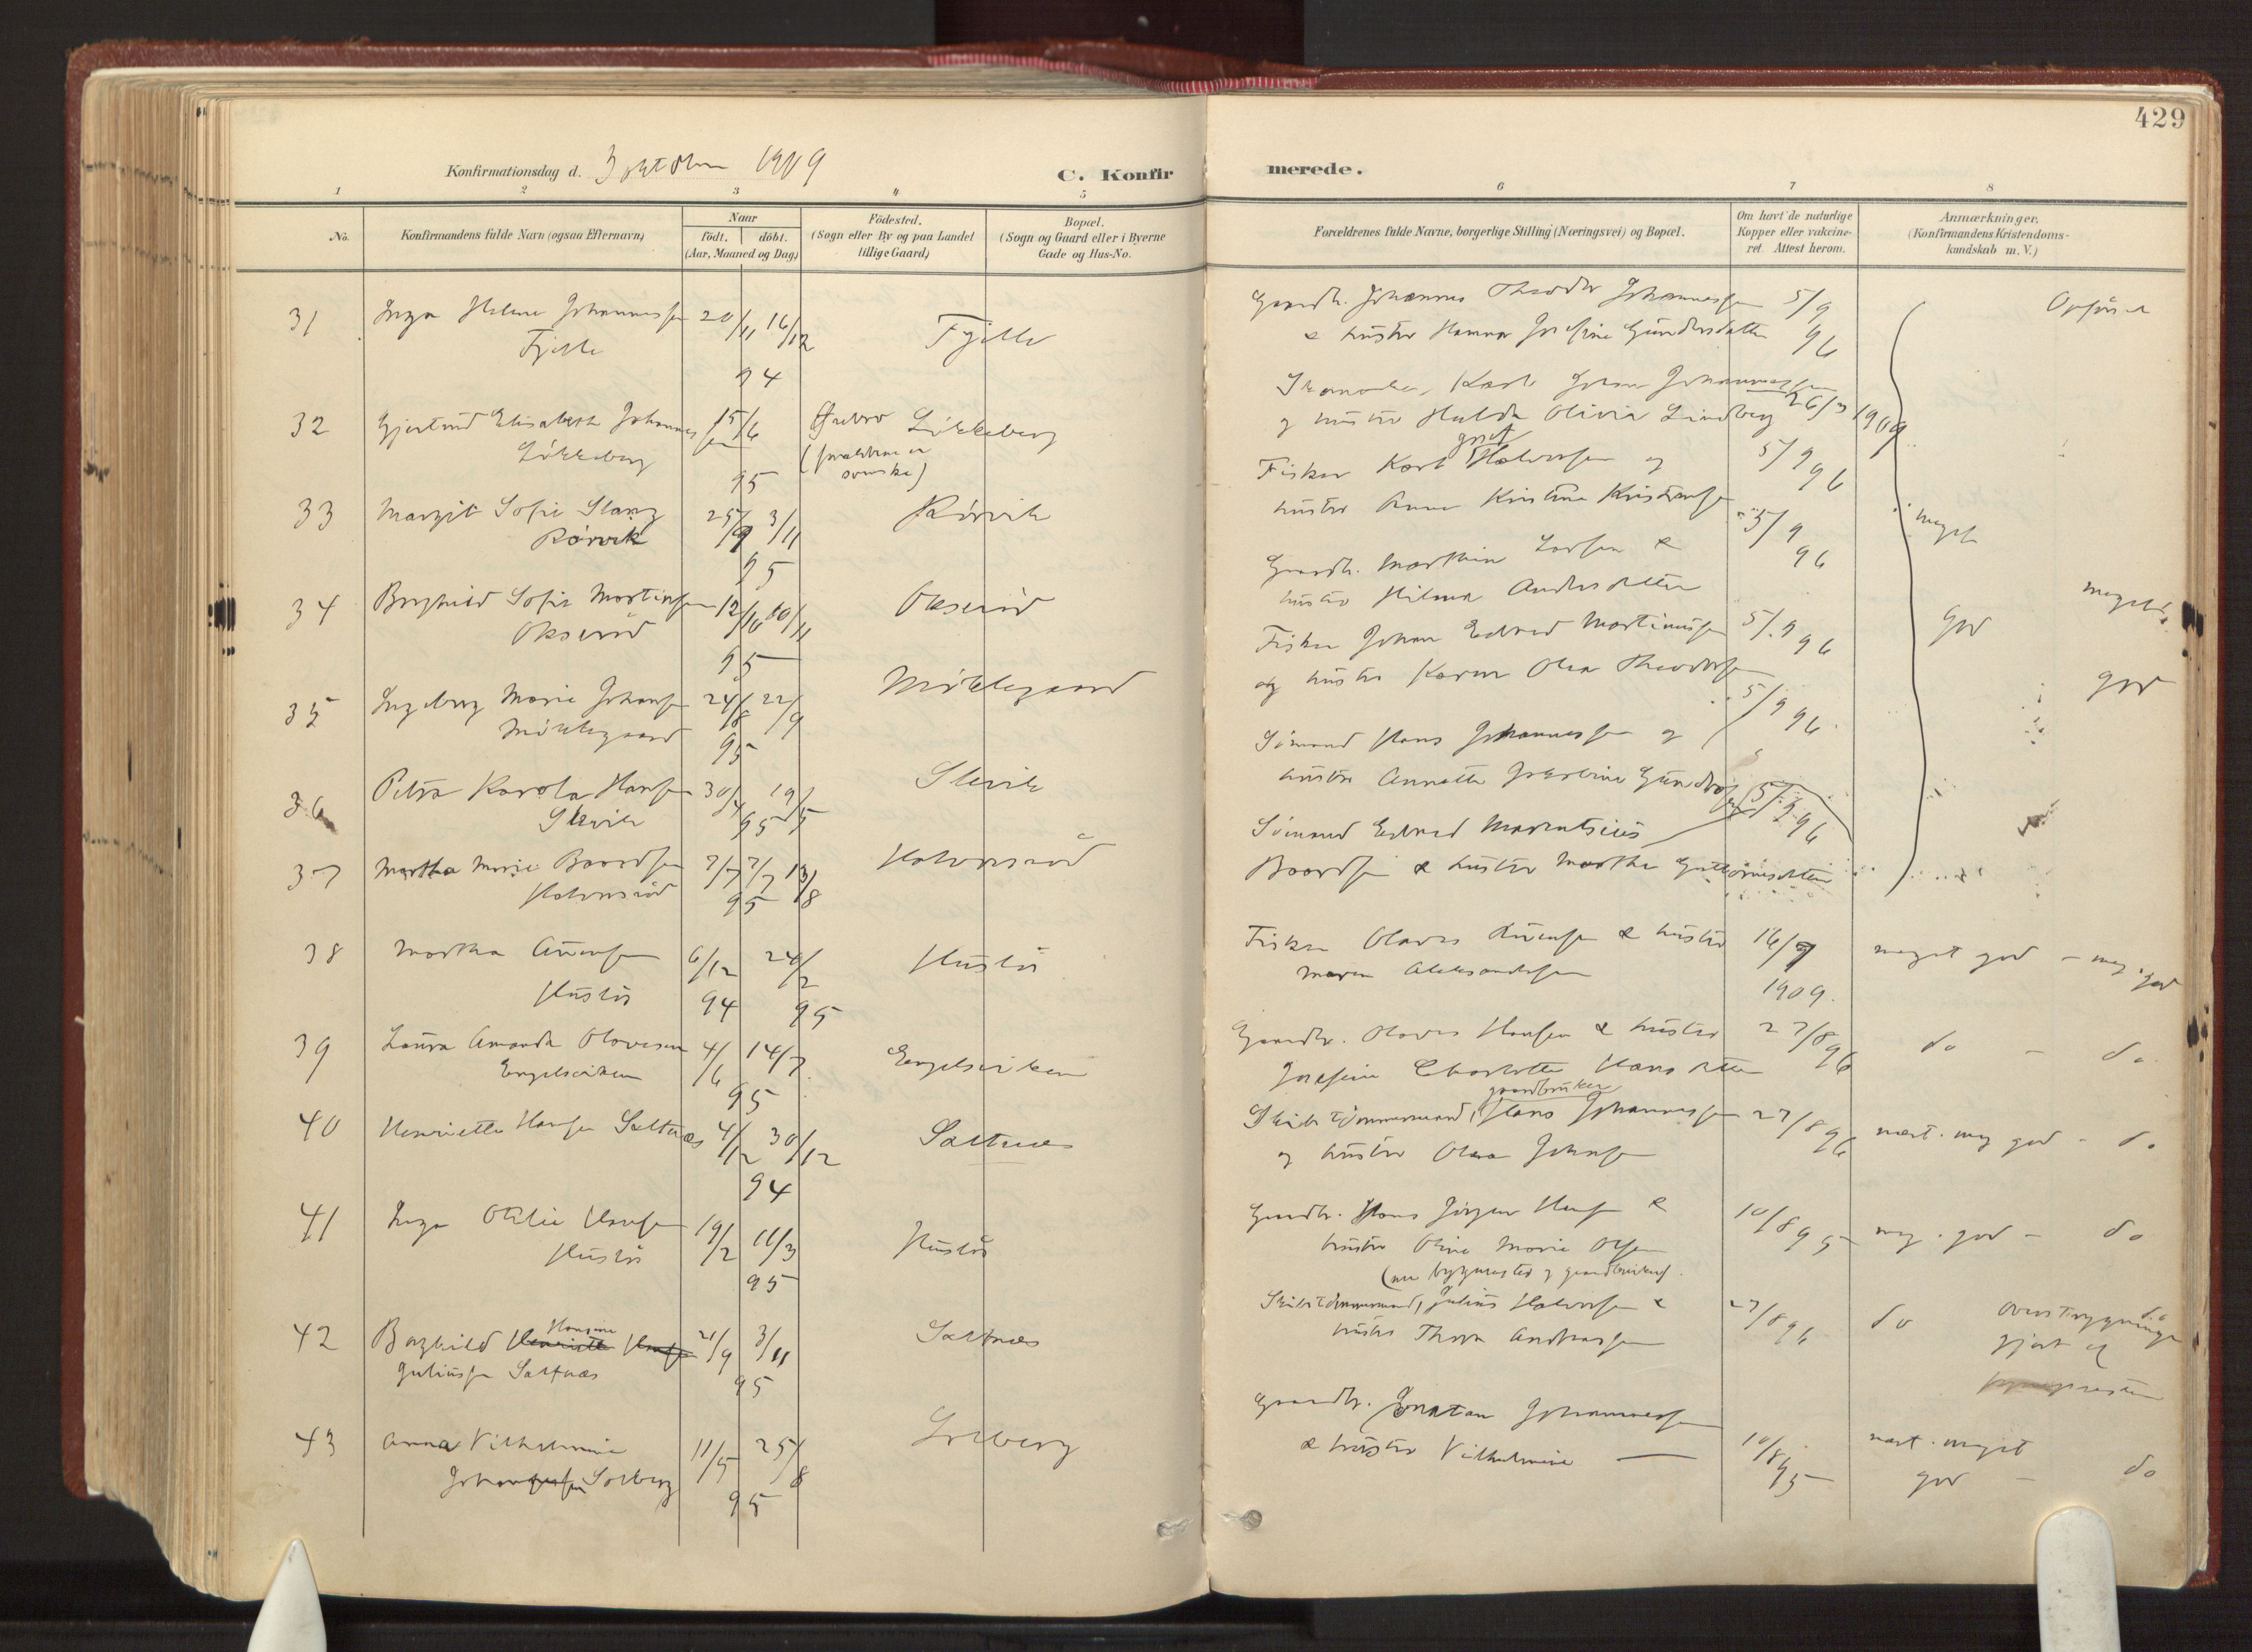 429
Konfirmationsdag d. 3 oktober 1909
C. Konfirmerede.
1 2 3 4 5 6 7 8
No.
Konfirmandens fulde Navn (ogsaa Efternavn)
Naar
födt. döbt.
(Aar, Maaned og Dag)
Födested.
(Sogn eller By og paa Landet
tillige Gaard)
Bopæl.
(Sogn og Gaard eller i Byerne
Gade og Hus-No.
Forældrenes fulde Navne, borgerlige Stilling (Næringsvei) og Bopæl.
Om havt de naturlige
Kopper eller vakcine-
ret. Attest herom.
Anmærkninger.
(Konfirmandens Kristendoms-
kundskab m. V.)
31 Inga Helene Johannessen 20/11 16/12 Fjelle Gaardb. Johannes Theodor Johannessen 5/9
Fjelle 94 & hustru Hanna Josefine Gundersdatter 96
32 Gjertrud Elisabeth Johannes 15/6 Lökkeberg Karl Johan Johannessen
sen Lökkeberg 95 (forældrene er svenske) og hustru Hulda Olivia Lindberg 26/3 1909
33 Margit Sofie Stang 25/9 3/11 Rörvik Fisker Karl Halvorsen og 5/9 96
Rörvik 95 hustru Anna Kristine Kristiansen meget
34 Borghild Sofie Martinsen 12/10 10/11 Okseröd Gaardb. Marthin Larsen & 5/9 96
Okseröd 95 hustru Hilma Andersdatter god meget
35 Ingeborg Marie Johansen 24/8 22/9 Mörkegaard Fisker Johan Edvard Martinussen 5/9 96
Mörkegaard 95 og hustru Karen Olea Theodorsen god
36 Petra Karola Hansen 30/4 19/5 Slevik Sömand Hans Johannessen og 5/9 96
Slevik 95 hustru Annette Josefine Gundersen
37 Martha Marie Baardsen 7/7 13/8 Halvorsröd Sömand Edvard Marentsius 5/9 96
Halvorsröd 95 Baardsen & hustru Marthe Guttormsdatter
38 Martha 6/12 24/2 Huslös Fisker Olaves & hustru 16/9 meget god – meg. god
Huslös 94 95 Maren Aleksandersen 1909.
39 Laura Amanda Olavesen 4/6 14/7 Engelsviken Gaardb. Olaves Hansen & hustru 27/8 96 do – do
Engelsviken 95 Josefine Charlotte Hansdatter
40 Henriette Hansen Saltnæs 4/12 30/12 Saltnæs Skibstömmermand, gaardbruker Hans Johannessen 27/8 96 næst. meg god – do
94 og hustru Olava Johnsen
41 Inga Otilie Hansen 19/2 11/3 Huslös Gaardb. Hans Jörgen Hansen & 10/8 95 meg. god – do
Huslös 95 hustru Oline Marie Olsen
(nu bygmester og gaardbruker)
42 Borghild Hansine Henriette Hansen 21/9 3/11 Saltnæs Skibstömmermand, Julius Halvorsen & 27/8 96 do do
Juliussen Saltnæs 95 hustru Thora Andreassen overstrygninger gjort af
43 Anna Vilhelmine 11/5 25/8 Solberg Gaardb. Jonatan Johannessen 10/8 95 næst. meget
Johannessen Solberg 95 & hustru Vilhelmine — god – do